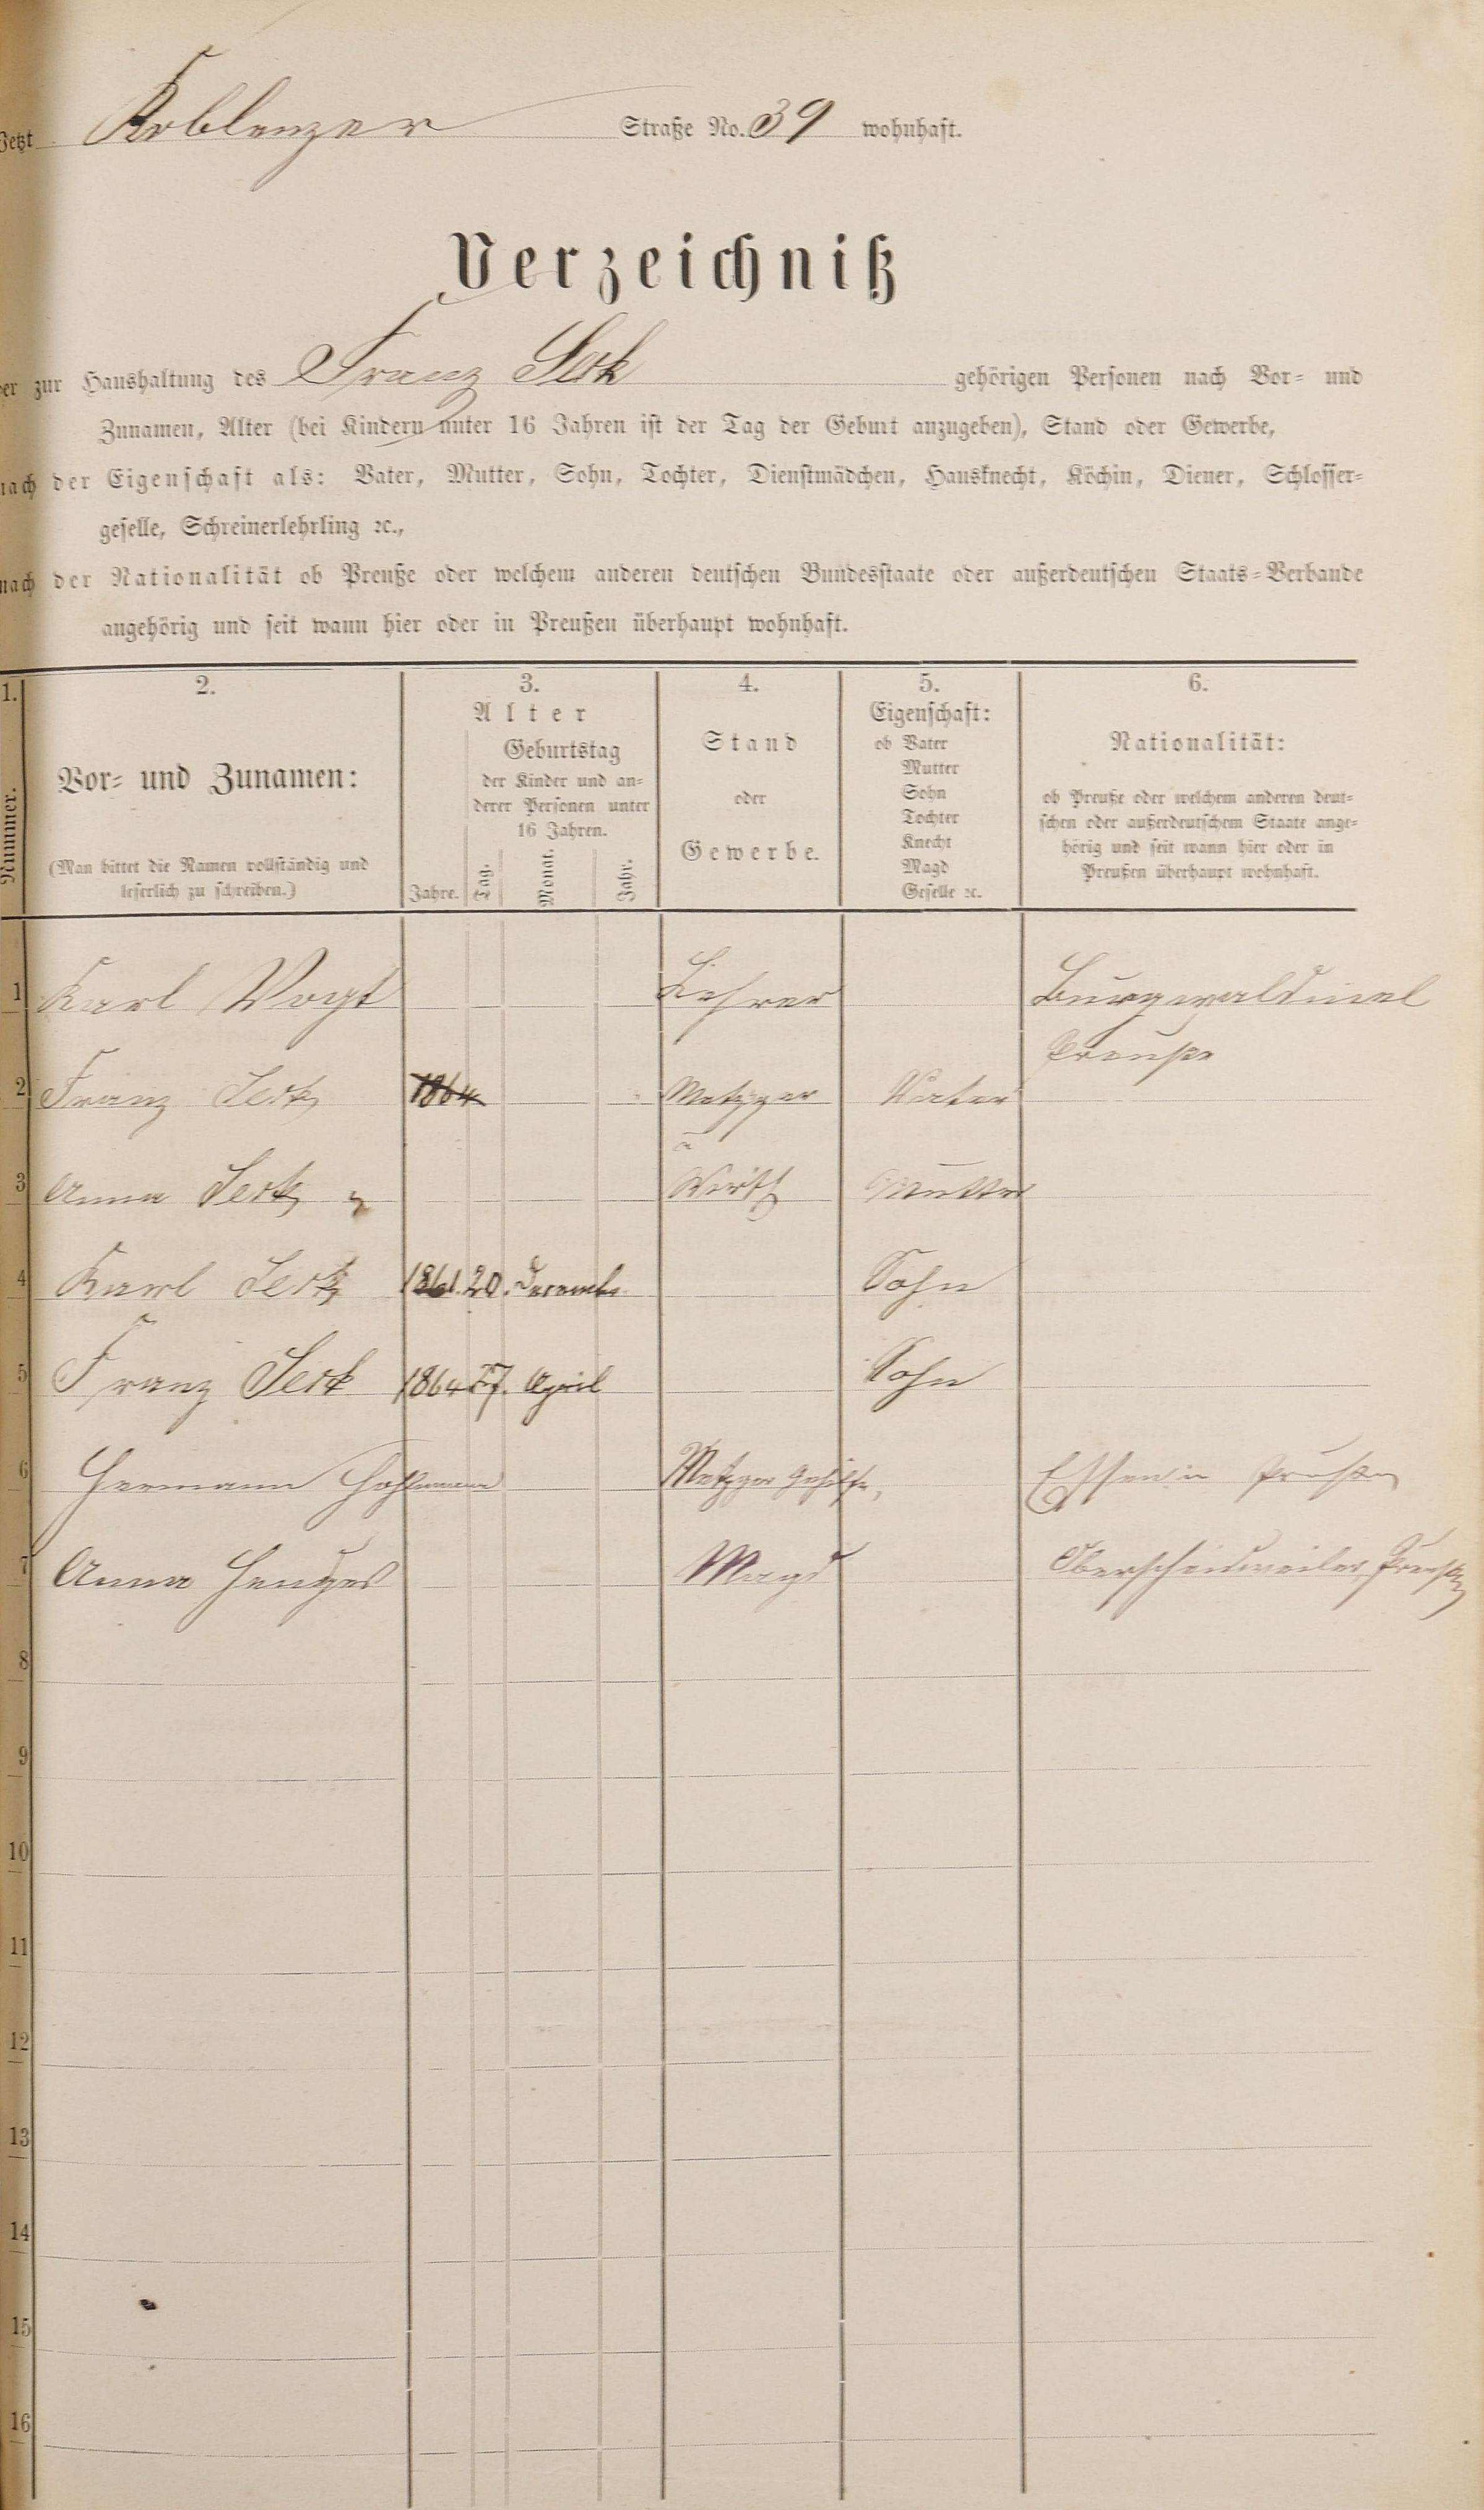 Jetzt Koblenzer Straße No. 39 wohnhaft.
Verzeichniß
der zur Haushaltung des Franz Seck gehörigen Personen nach Vor- und
Zunamen, Alter (bei Kindern unter 16 Jahren ist der Tag der Geburt anzugeben), Stand oder Gewerbe,
nach der Eigenschaft als: Vater, Mutter, Sohn, Tochter, Dienstmädchen, Hausknecht, Köchin, Diener, Schlosser-
geselle, Schreinerlehrling ꝛc.,
nach der Nationalität ob Preuße oder welchem anderen deutschen Bundesstaate oder außerdeutschen Staats-Verbande
angehörig und seit wann hier oder in Preußen überhaupt wohnhaft.
1. 2. 3. 4. 5. 6.
Nummer.
Vor- und Zunamen:
(Man bittet die Namen vollständig und
leserlich zu schreiben.)
Alter
Geburtstag
der Kinder und an-
derer Personen unter
16 Jahren.
Jahre. Tag. Monat. Jahr.
Stand
oder
Gewerbe.
Eigenschaft:
ob Vater
Mutter
Sohn
Tochter
Knecht
Magd
Geselle ꝛc.
Nationalität:
ob Preuße oder welchem anderen deut-
schen oder außerdeutschem Staate ange-
hörig und seit wann hier oder in
Preußen überhaupt wohnhaft.
1 Karl Vogt Lehrer Burgwaldniel
Preuße
2 Franz Seck 1864 Metzger Vater
u
3 Anna Seck Wirth Mutter
4 Karl Seck 1861. 20. Decemb. Sohn
5 Franz Seck 1864 27. April Sohn
6 Hermann Metzger Gehilfe, Essen in Preußen
7 Anna Magd Oberscheidweiler Preußen
8
9
10
11
12
13
14
15
16